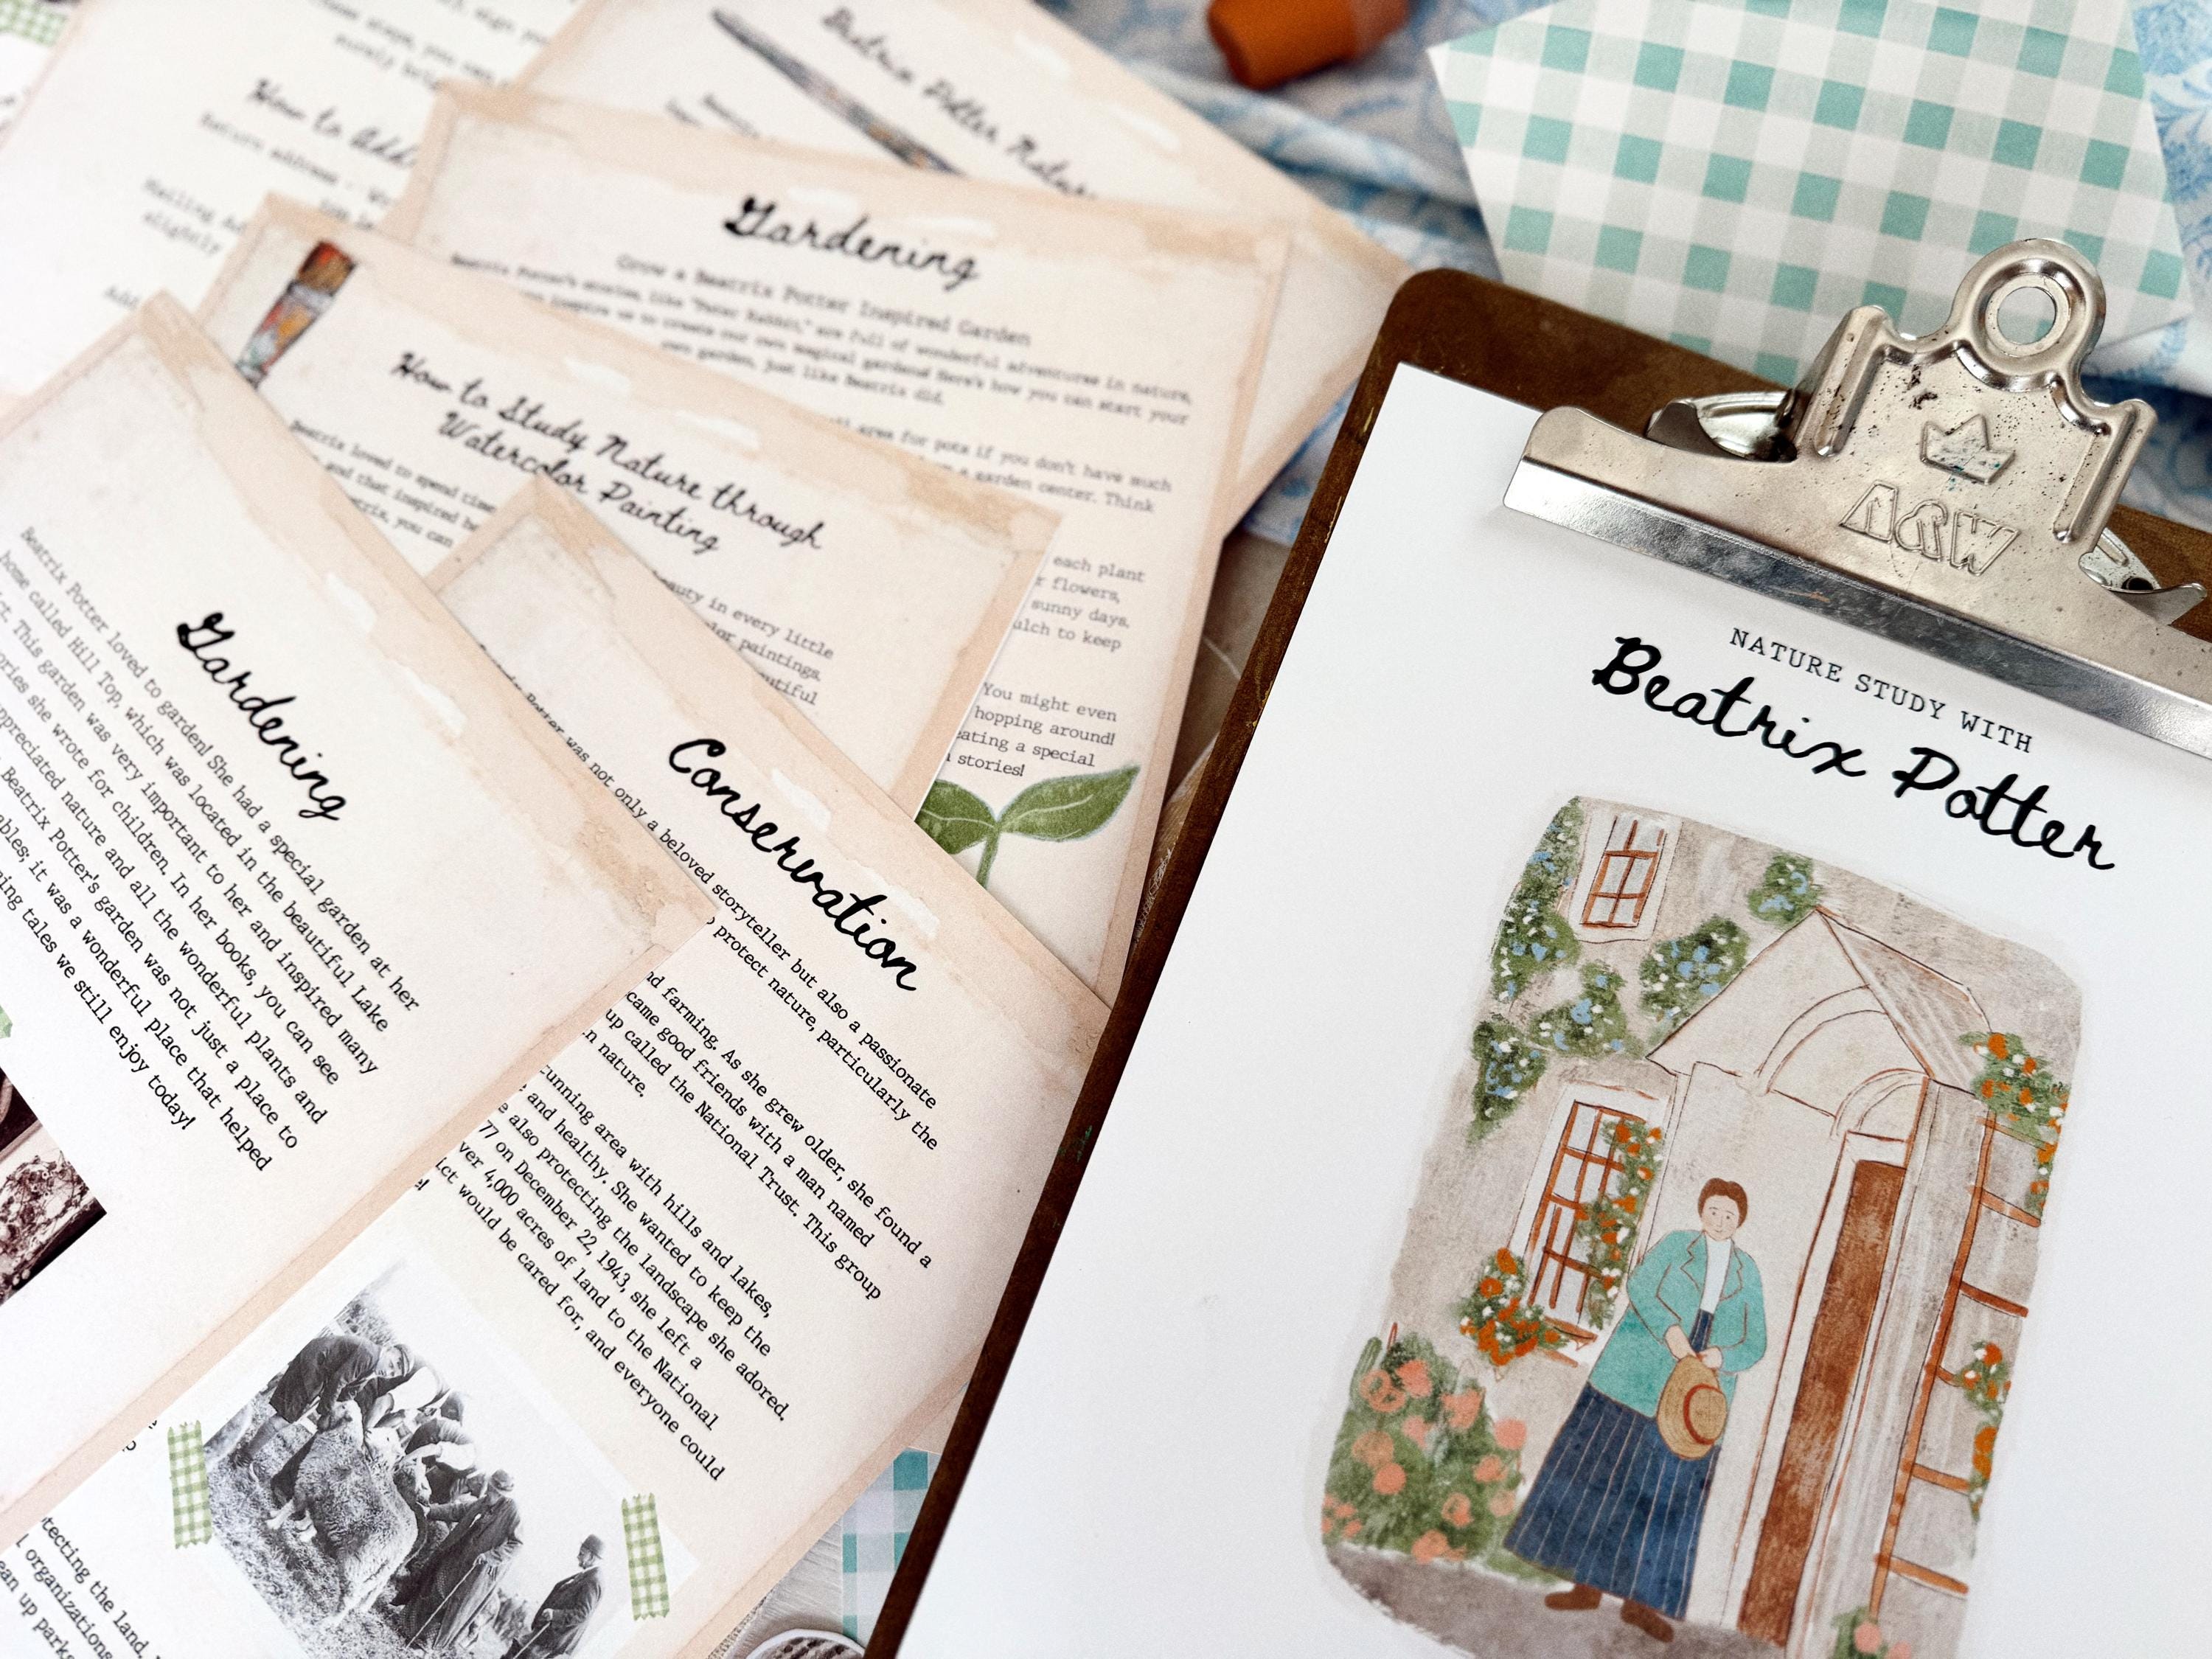 How to
Return address
Mailing
slightly
Beatrix Potter Nature
Gardening
Grow a Beatrix Potter Inspired Garden
Beatrix Potter's stories, like "Peter Rabbit," are full of wonderful adventures in nature,
inspire us to create our own magical gardens! Here's how you can start your
own garden, just like Beatrix did.
area for pots if you don't have much
a garden center. Think
each plant
flowers,
sunny days.
to keep
You might even
hopping around!
a special
stories!
How to Study Nature through
Watercolor Painting
Beatrix loved to spend time
and that inspired
you can
in every little
paintings.
Gardening
Beatrix Potter loved to garden! She had a special garden at her
home called Hill Top, which was located in the beautiful Lake
This garden was very important to her and inspired many
she wrote for children. In her books, you can see
appreciated nature and all the wonderful plants and
Beatrix Potter's garden was not just a place to
it was a wonderful place that helped
tales we still enjoy today!
Conservation
Potter was not only a beloved storyteller but also a passionate
protect nature, particularly the
farming. As she grew older, she found a
came good friends with a man named
up called the National Trust. This group
nature.
area with hills and lakes,
and healthy. She wanted to keep the
also protecting the landscape she adored.
77 on December 22, 1943, she left a
ver 4,000 acres of land to the National
would be cared for, and everyone could
the land,
organizations
up
A&W
NATURE STUDY WITH
Beatrix Potter